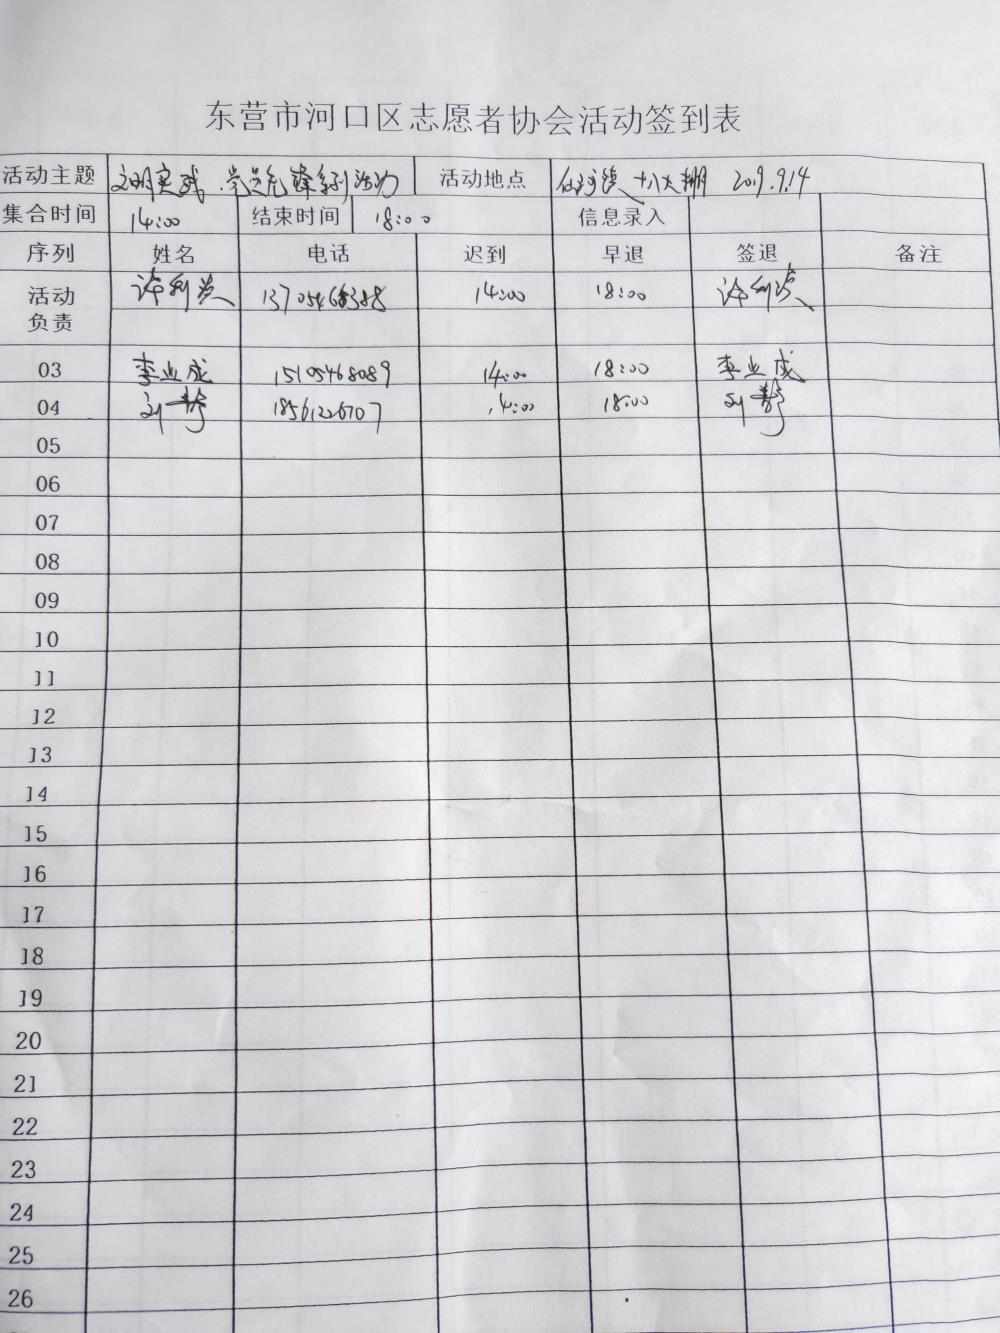 东营市河口区志愿者协会活动签到表
活动主题 文明实践.党员先锋系列活动 活动地点 十八大棚 2019.9.14
集合时间 14:00 结束时间 18:00 信息录入
序列 姓名 电话 迟到 早退 签退 备注
活动 许利 13705468388 14:00 18:00 许利
负责
03 李业成 15105468089 14:00 18:00 李业成
04 刘静 18561226707 14:00 18:00 刘静
05
06
07
08
09
10
11
12
13
14
15
16
17
18
19
20
21
22
23
24
25
26